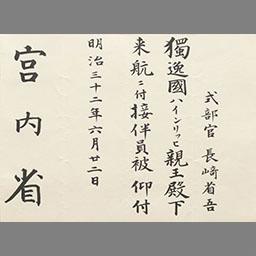 式部官 長崎省吾
獨逸國ハインリッヒ親王殿下
来航ニ付接伴員被 仰付
明治三十二年六月廿二日
宮内省